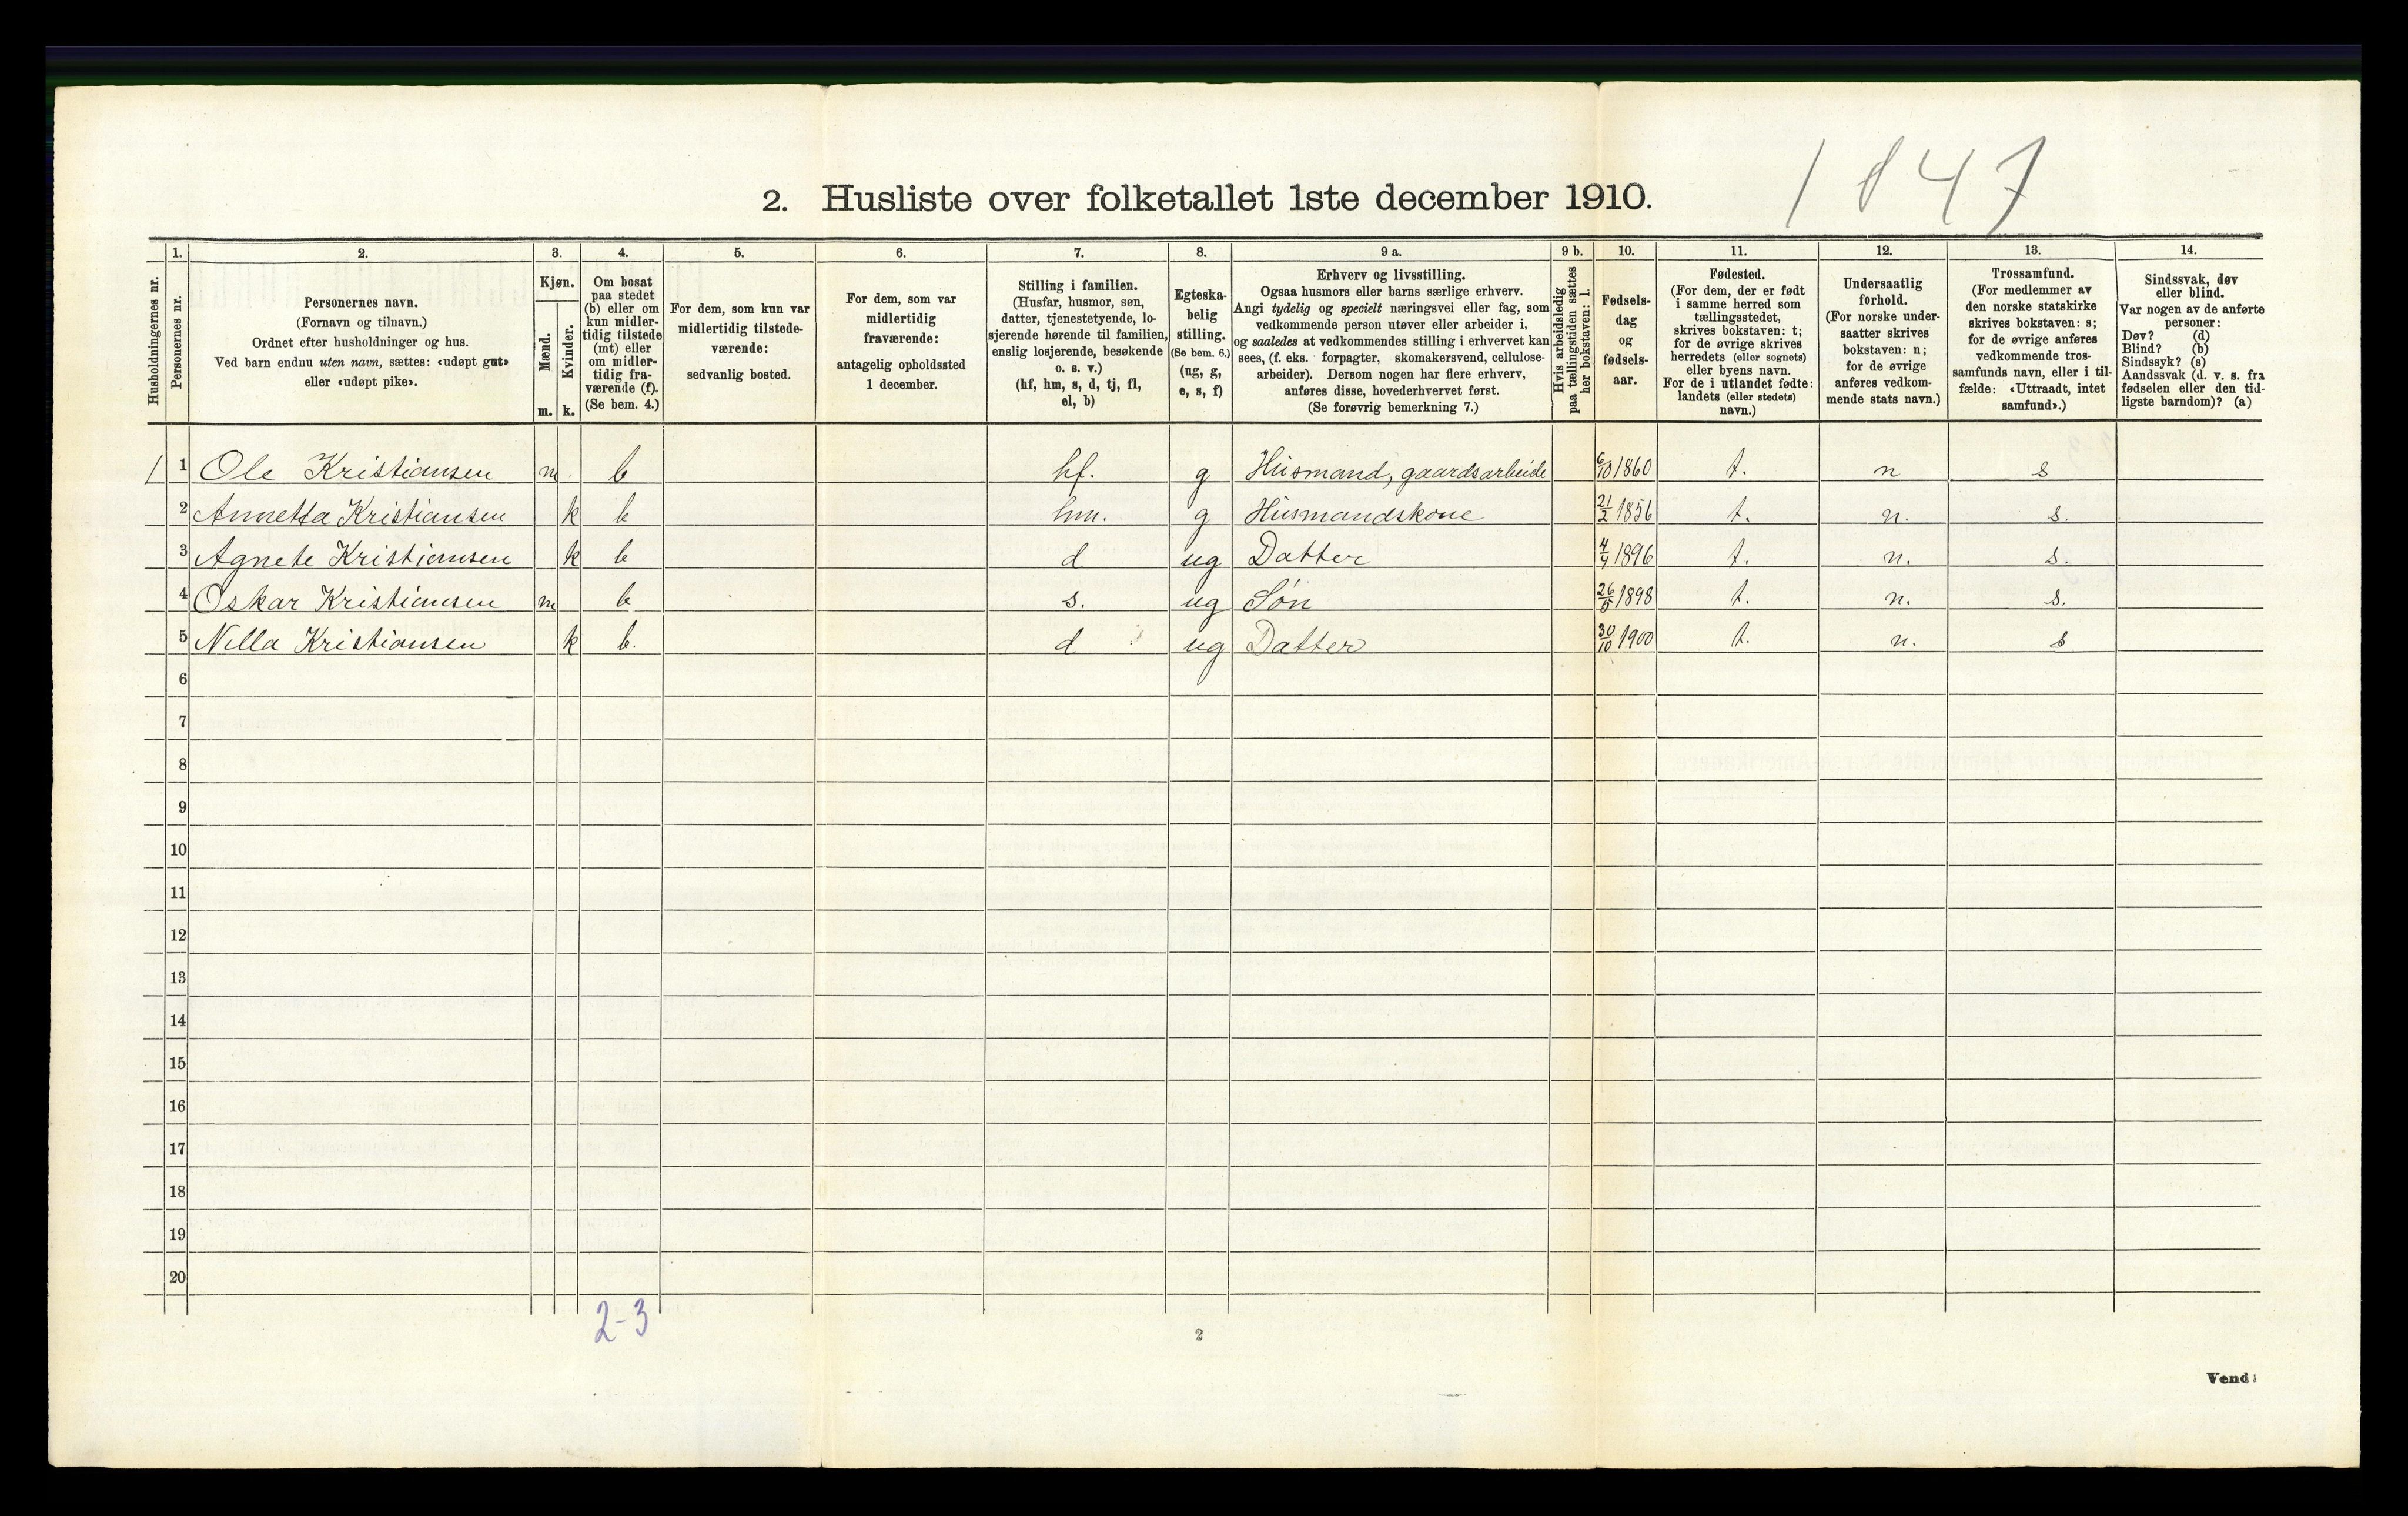 1847
2. Husliste over folketallet 1ste december 1910.
Husholdningernes nr.
1.
Personernes nr.
2.
Personernes navn.
(Fornavn og tilnavn.)
Ordnet efter husholdninger og hus.
Ved barn endnu uten navn, sættes: «udøpt gut»
eller «udøpt pike».
3.
Kjøn.
Mænd.
Kvinder.
m.
k.
4.
Om bosat
paa stedet
(b) eller om
kun midler-
tidig tilstede
(mt) eller
om midler-
tidig fra-
værende (f).
(Se bem. 4.)
5.
For dem, som kun var
midlertidig tilstede-
værende:
sedvanlig bosted.
6.
For dem, som var
midlertidig
fraværende:
antagelig opholdssted
1 december.
7.
Stilling i familien.
(Husfar, husmor, søn,
datter, tjenestetyende, lo-
sjerende hørende til familien,
enslig losjerende, besøkende
o. s. v.)
(hf, hm, s, d, tj, fl,
el, b)
8.
Egteska-
belig
stilling.
(Se bem. 6.)
(ug, g,
e, s, f)
9 a.
Erhverv og livsstilling.
Ogsaa husmors eller barns særlige erhverv.
Angi tydelig og specielt næringsvei eller fag, som
vedkommende person utøver eller arbeider i,
og saaledes at vedkommendes stilling i erhvervet kan
sees, (f. eks. forpagter, skomakersvend, cellulose-
arbeider). Dersom nogen har flere erhverv,
anføres disse, hovederhvervet først.
(Se forøvrig bemerkning 7.)
9 b.
Hvis arbeidsledig
paa tællingstiden sættes
her bokstaven: l.
10.
Fødsels-
dag
og
fødsels-
aar.
11.
Fødested.
(For dem, der er født
i samme herred som
tællingsstedet,
skrives bokstaven: t;
for de øvrige skrives
herredets (eller sognets)
eller byens navn.
For de i utlandet fødte:
landets (eller stedets)
navn.)
12.
Undersaatlig
forhold.
(For norske under-
saatter skrives
bokstaven: n;
for de øvrige
anføres vedkom-
mende stats navn.)
13.
Trossamfund.
(For medlemmer av
den norske statskirke
skrives bokstaven: s;
for de øvrige anføres
vedkommende tros-
samfunds navn, eller i til-
fælde: «Uttraadt, intet
samfund».)
14.
Sindssvak, døv
eller blind.
Var nogen av de anførte
personer:
Døv? (d)
Blind? (b)
Sindssyk? (s)
Aandssvak (d. v. s. fra
fødselen eller den tid-
ligste barndom)? (a)
1 1 Ole Kristiansen m b hf. g Husmand, gaardsarbeide 6/10 1860 t. n s
2 Annetta Kristiansen k b hm. g Husmandskone 21/2 1856 t. n. s.
3 Agnete Kristiansen k b d ug Datter 4/4 1896 t. n. s.
4 Oskar Kristiansen m b s. ug Søn 26/5 1898 t. n. s.
5 Nilla Kristiansen k b. d ug Datter 30/10 1900 t. n. s
6
7
8
9
10
11
12
13
14
15
16
17
18
19
20
2-3
2
Vend!